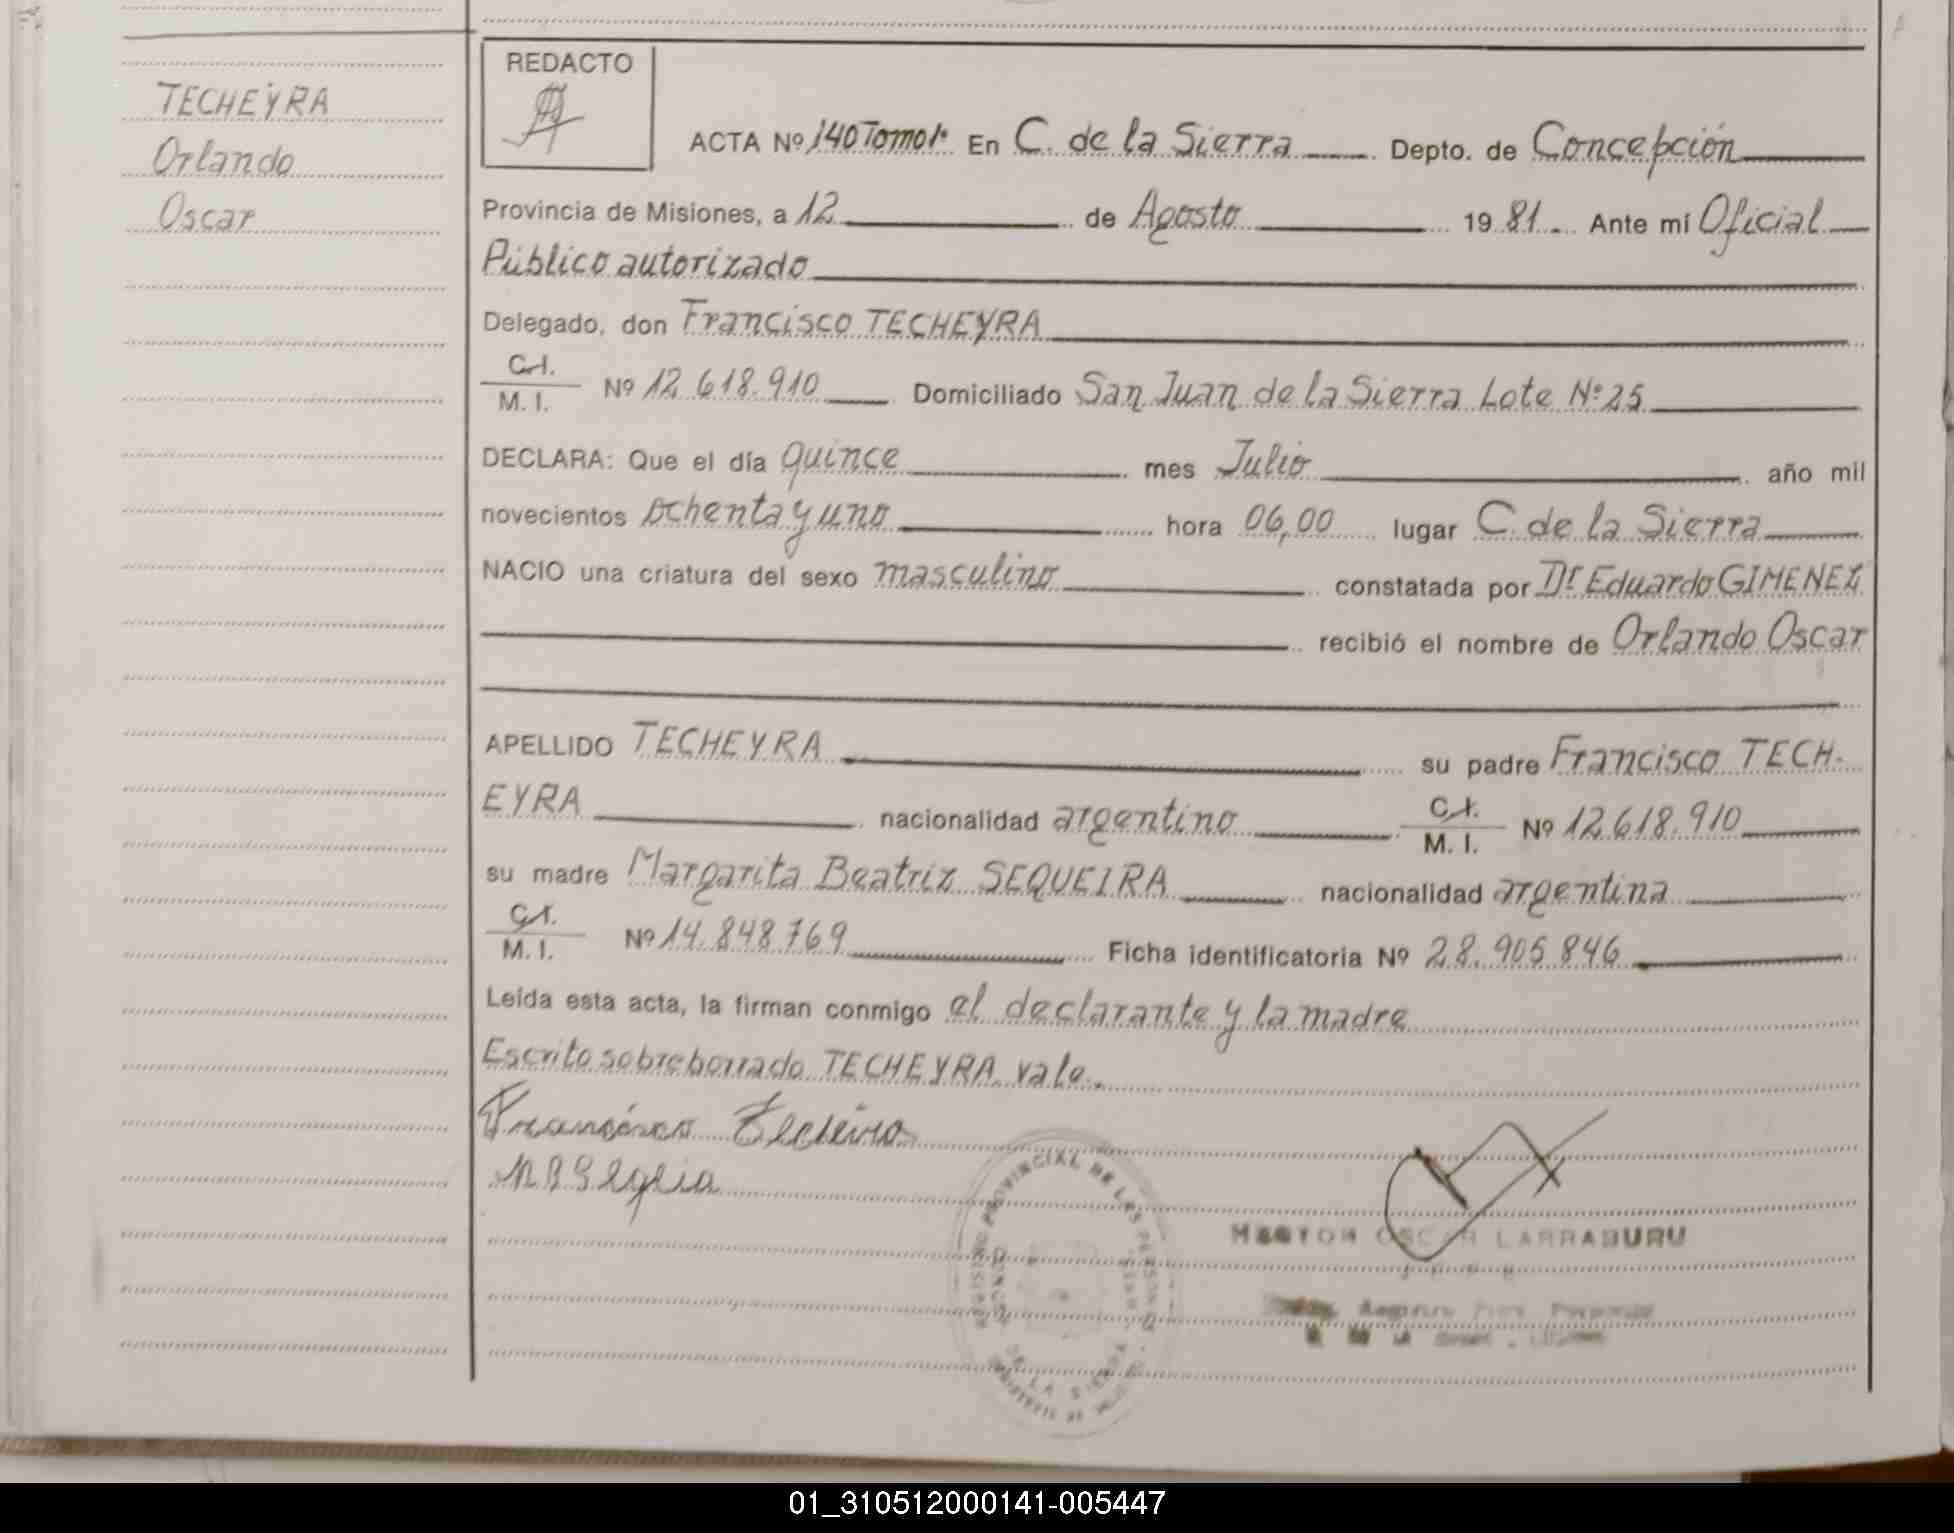 TECHEYRA
Orlando
Oscar
REDACTO
ACTA Nº 140 Tomo 1º En C. de la Sierra Depto. de Concepción
Provincia de Misiones, a 12 de Agosto 1981 Ante mí Oficial
Público autorizado
Delegado, don Francisco TECHEYRA
C.I.
M. I. Nº 12.618.910 Domiciliado San Juan de la Sierra Lote Nº 25
DECLARA: Que el día quince mes Julio año mil
novecientos ochenta y uno hora 06,00 lugar C. de la Sierra
NACIO una criatura del sexo masculino constatada por Dr Eduardo GIMENEZ
recibió el nombre de Orlando Oscar
APELLIDO TECHEYRA su padre Francisco TECH-
EYRA nacionalidad argentino C.I.
M. I. Nº 12.618.910
su madre Margarita Beatriz SEQUEIRA nacionalidad argentina
C.I.
M. I. Nº 14.848.769 Ficha identificatoria Nº 28.905.846
Leída esta acta, la firman conmigo el declarante y la madre
Escrito sobreborrado TECHEYRA vale.
Francisco
PROVINCIAL DE LAS PERSONAS
DE LA SIERRA
HECTOR OSCAR LARRABURU
JEFE
01_310512000141-005447